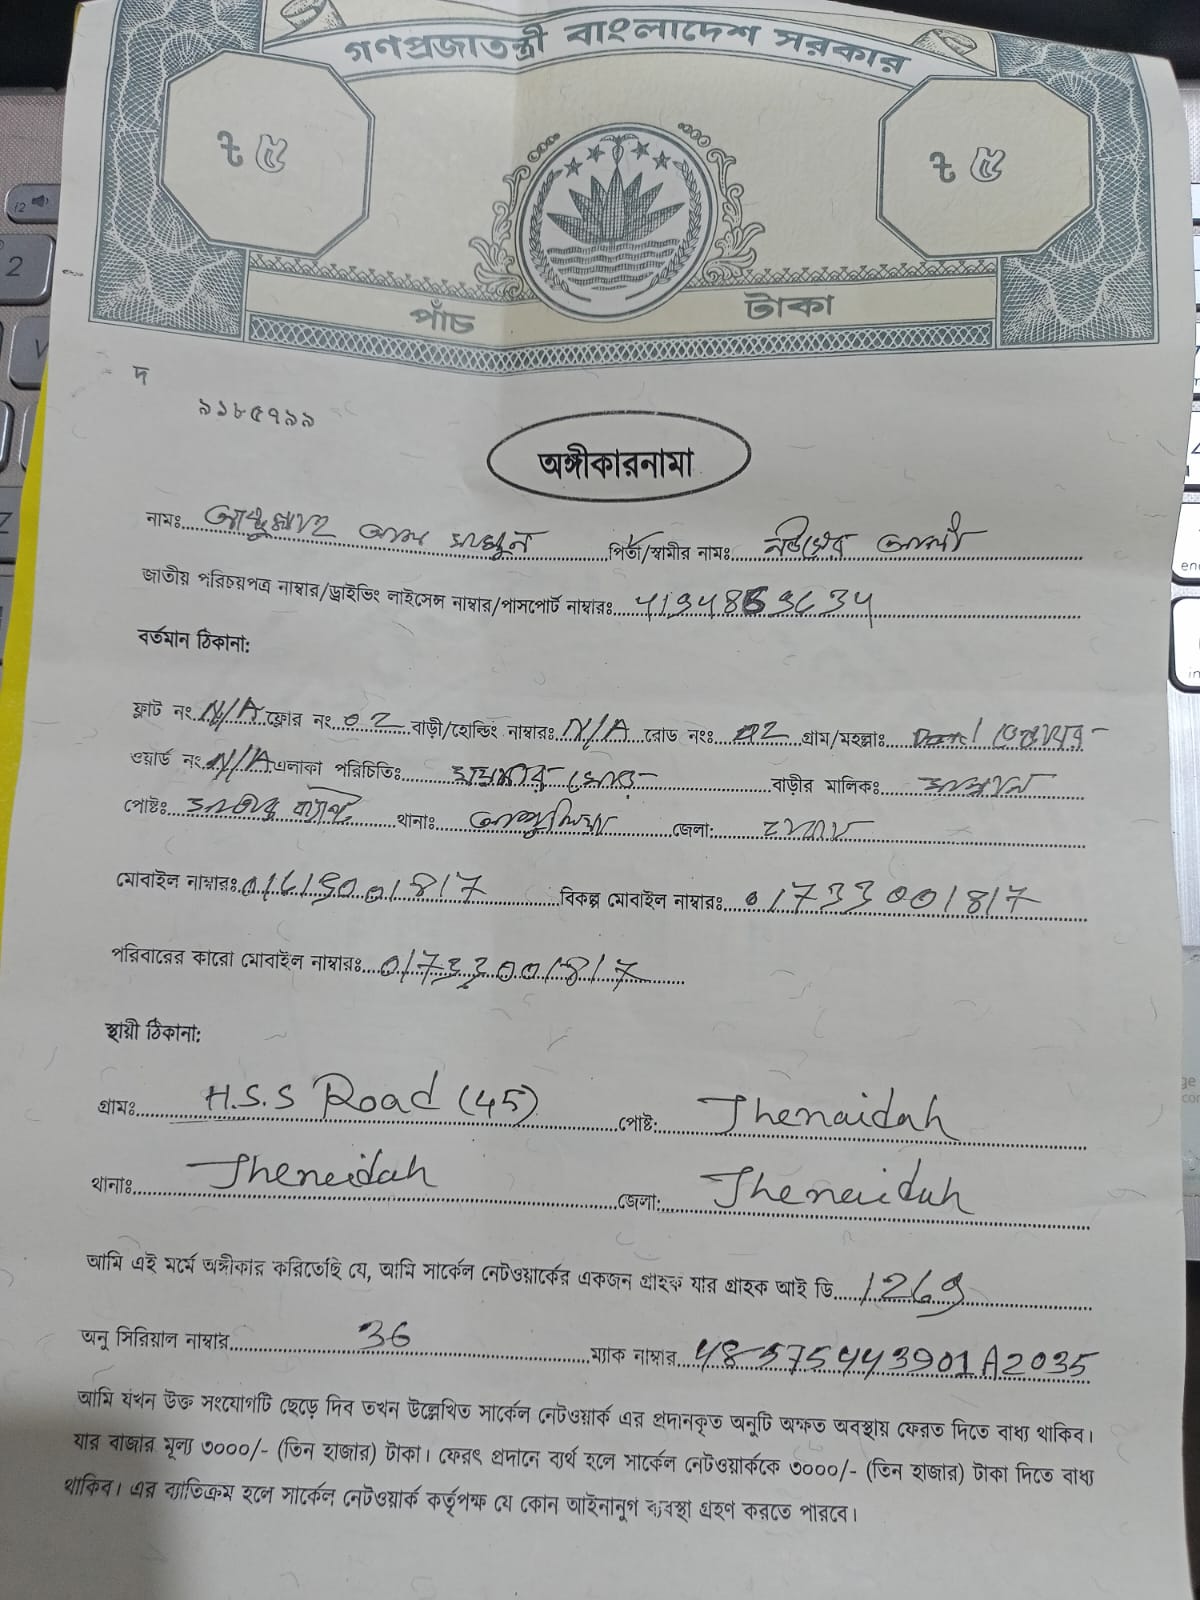 গণপ্রজাতন্ত্রী বাংলাদেশ সরকার
৳ ৫ ৳ ৫
পাঁচ টাকা
দ
৯১৮৫৭৯৯
অঙ্গীকারনামা
নামঃ আব্দুল্লাহ আল মামুন পিতা/স্বামীর নামঃ আলী
জাতীয় পরিচয়পত্র নাম্বার/ড্রাইভিং লাইসেন্স নাম্বার/পাসপোর্ট নাম্বারঃ
বর্তমান ঠিকানা:
ফ্লাট নং N/A ফ্লোর নং 02 বাড়ী/হোল্ডিং নাম্বারঃ N/A রোড নংঃ 02 গ্রাম/মহল্লাঃ
ওয়ার্ড নং N/A এলাকা পরিচিতিঃ বাড়ীর মালিকঃ
পোষ্টঃ থানাঃ জেলা:
মোবাইল নাম্বারঃ বিকল্প মোবাইল নাম্বারঃ 01733001817
পরিবারের কারো মোবাইল নাম্বারঃ 01733001817
স্থায়ী ঠিকানা:
গ্রামঃ H.S.S Road (45) পোষ্ট: Jhenaidah
থানাঃ Jheneidah জেলা: Jhenaidah
আমি এই মর্মে অঙ্গীকার করিতেছি যে, আমি সার্কেল নেটওয়ার্কের একজন গ্রাহক যার গ্রাহক আই ডি 1269
অনু সিরিয়াল নাম্বার 36 ম্যাক নাম্বার 485754443901A2035
আমি যখন উক্ত সংযোগটি ছেড়ে দিব তখন উল্লেখিত সার্কেল নেটওয়ার্ক এর প্রদানকৃত অনুটি অক্ষত অবস্থায় ফেরত দিতে বাধ্য থাকিব।
যার বাজার মূল্য ৩০০০/- (তিন হাজার) টাকা। ফেরৎ প্রদানে ব্যর্থ হলে সার্কেল নেটওয়ার্ককে ৩০০০/- (তিন হাজার) টাকা দিতে বাধ্য
থাকিব। এর ব্যাতিক্রম হলে সার্কেল নেটওয়ার্ক কর্তৃপক্ষ যে কোন আইনানুগ ব্যবস্থা গ্রহণ করতে পারবে।